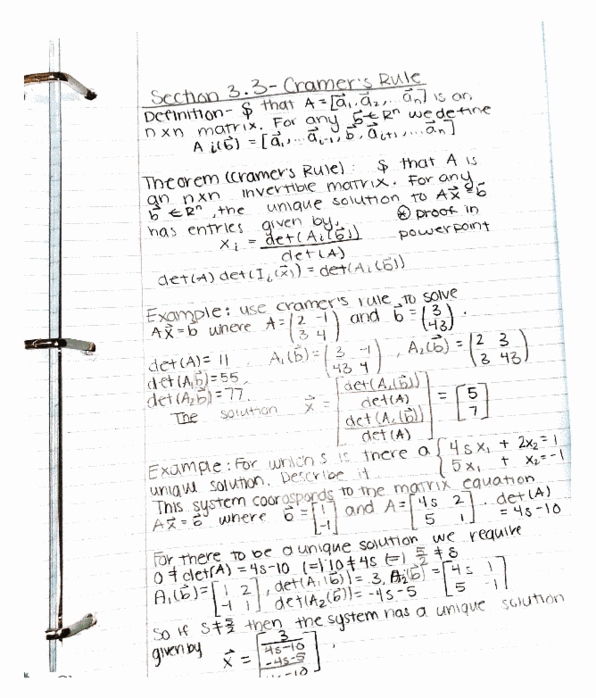 Section 3.3 - Cramer's Rule
Definition - $ that A = [a⃗₁, a⃗₂, ... a⃗ₙ] is an
n×n matrix. For any b⃗ ∈ ℝⁿ we define
Aᵢ(b⃗) = [a⃗₁, ... a⃗ᵢ₋₁, b⃗, a⃗ᵢ₊₁, ... a⃗ₙ]
Theorem (Cramer's Rule): $ that A is
an n×n invertible matrix. For any
b⃗ ∈ ℝⁿ, the unique solution to Ax⃗ = b⃗
has entries given by, ⊛ proof in
xᵢ = det(Aᵢ(b⃗)) / det(A) powerpoint
det(A) det(Iᵢ(x⃗)) = det(Aᵢ(b⃗))
Example: use cramer's rule to solve
Ax⃗ = b where A = (2 -1; 3 4) and b⃗ = (3; 43).
det(A) = 11, A₁(b⃗) = (3 -1; 43 4), A₂(b⃗) = (2 3; 3 43)
det(A₁b⃗) = 55
det(A₂b⃗) = 77.
The solution x⃗ = [det(A₁(b⃗)) / det(A); det(A₂(b⃗)) / det(A)] = [5; 7]
Example: For which s is there a { 4sx₁ + 2x₂ = 1
unique solution. Describe it. 5x₁ + x₂ = -1
This system coorasponds to the matrix equation
Ax⃗ = b⃗ where b⃗ = [1; -1] and A = [4s 2; 5 1]. det(A) = 4s-10
For there to be a unique solution we require
0 ≠ det(A) = 4s-10 (=) 10 ≠ 4s (=) 5/2 ≠ s
A₁(b⃗) = [1 2; -1 1], det(A₁(b⃗)) = 3, A₂(b⃗) = [4s 1; 5 -1]
det(A₂(b⃗)) = -4s-5
So if s ≠ 5/2 then the system has a unique solution
given by x⃗ = [3 / 4s-10; -4s-5 / 4s-10].